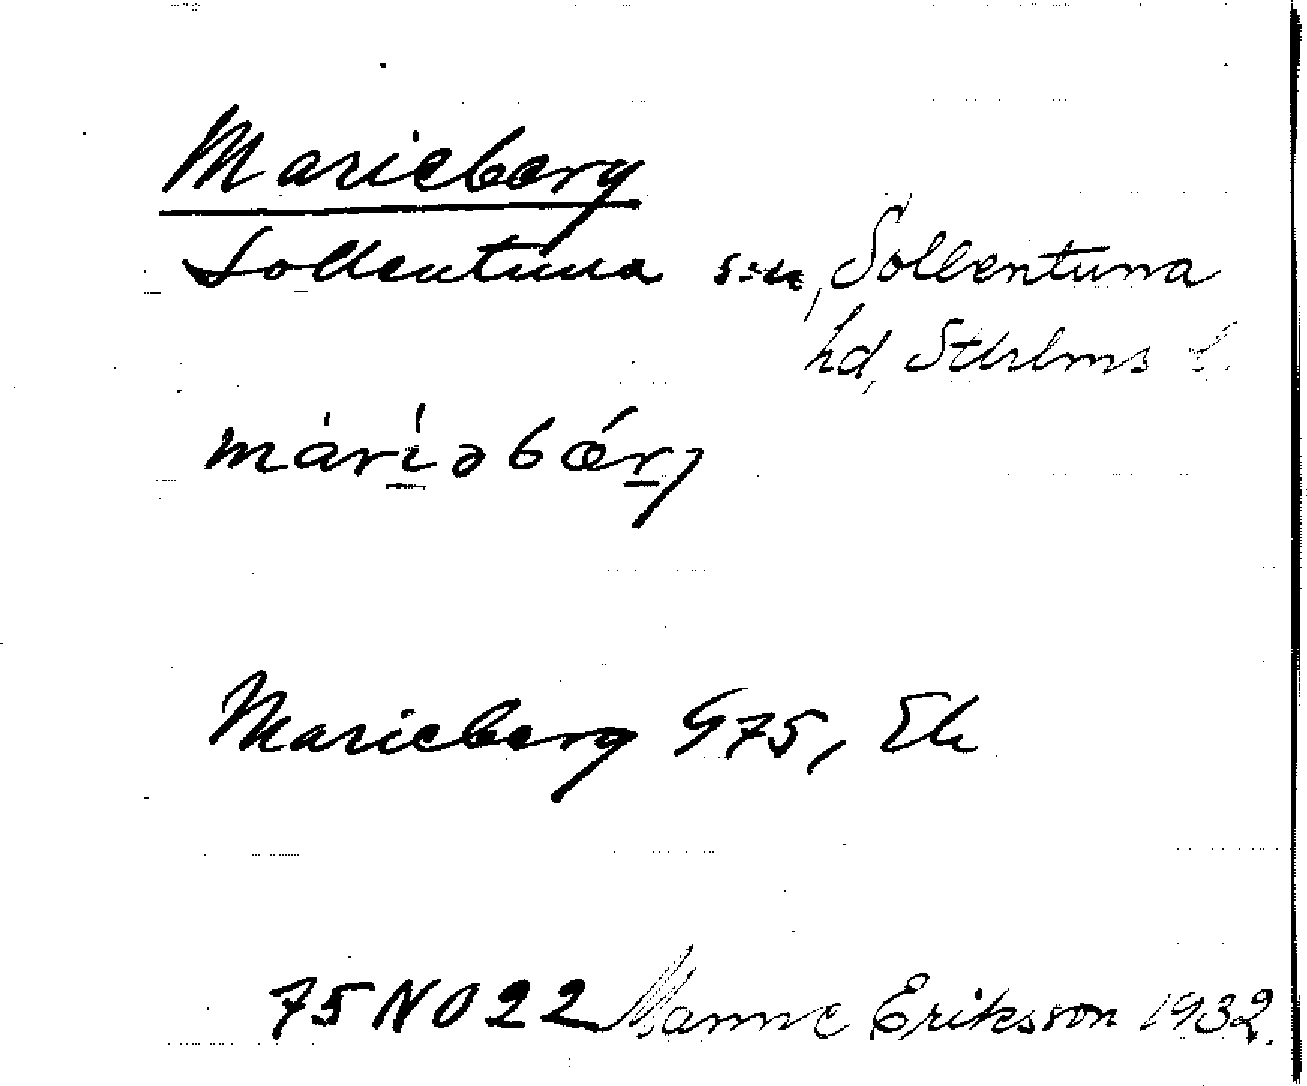 Marieberg
Sollentuna s:n, Sollentuna
hd, Sthlms l.
màrìəbǽrj
Marieberg G75, Ek
75 NO 22 Manne Eriksson 1932.